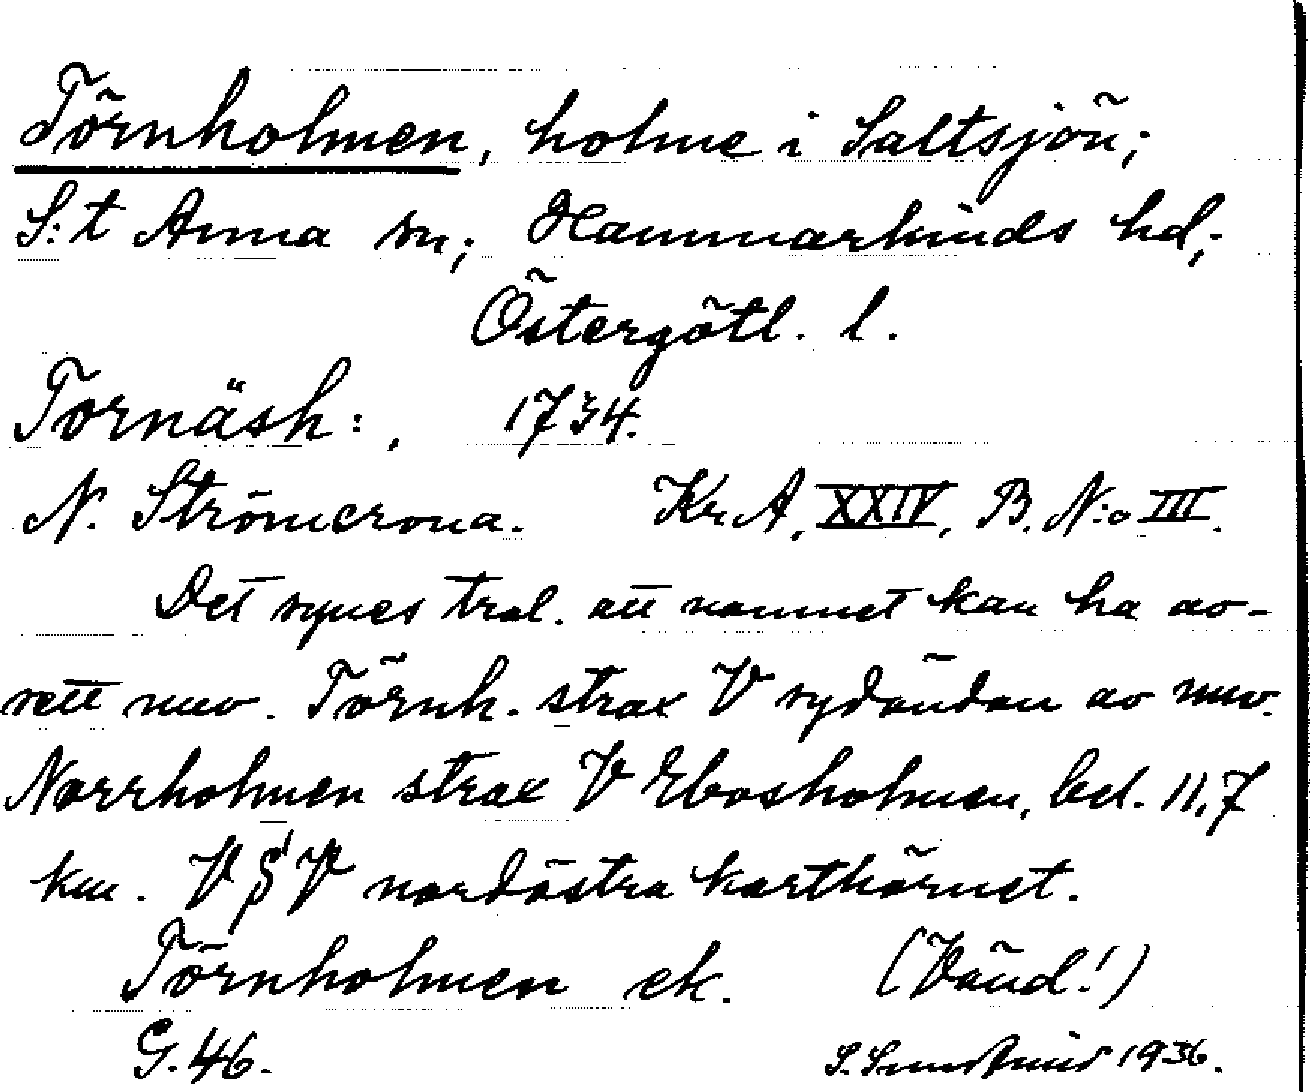 Törnholmen, holme i Saltsjön;
S:t Anna sn; Hammarkinds hd;
Östergötl. l.
Tornäsh:, 1734.
N. Strömcrona. Kr. A, XXIV, B. N:o III.
Det synes trol. att namnet kan ha av-
sett nuv. Törnh. strax V sydändan av nuv.
Norrholmen strax V Ebosholmen, bel. 11,7
km. V S V nordöstra karthörnet.
Törnholmen ek. (Vänd!)
G. 46. 1936.